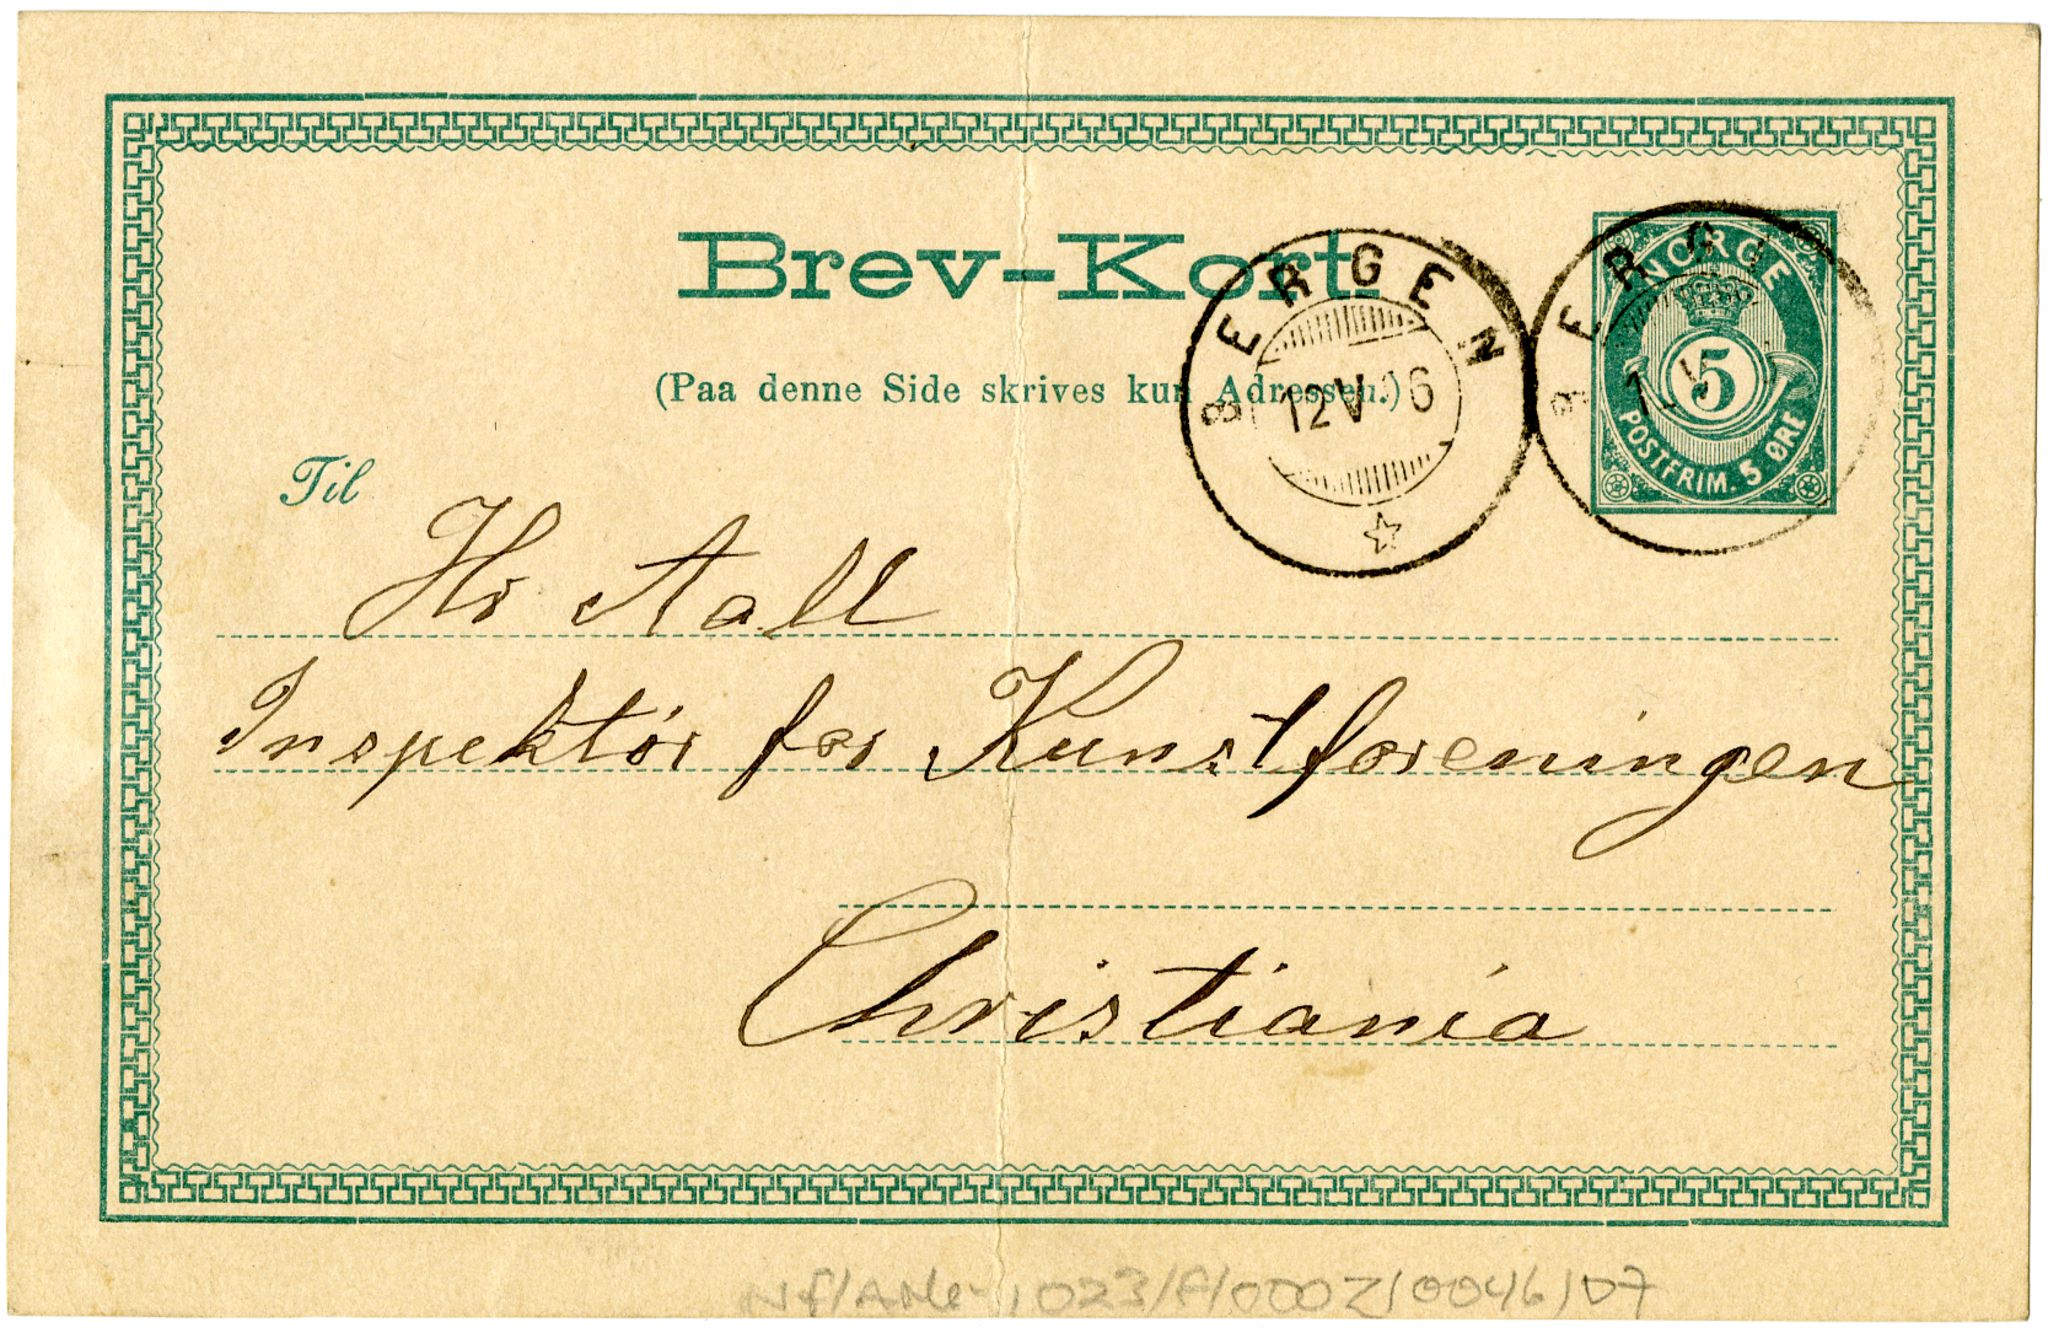 Brev-Kort.
NORGE
5
POSTFRIM. 5 ØRE
(Paa denne Side skrives kun Adressen.)
BERGEN
12 V
BERG
Til
Hr Aall
Inspektør for Kunstforeningen
Christiania
1023/F/0002/0046/07